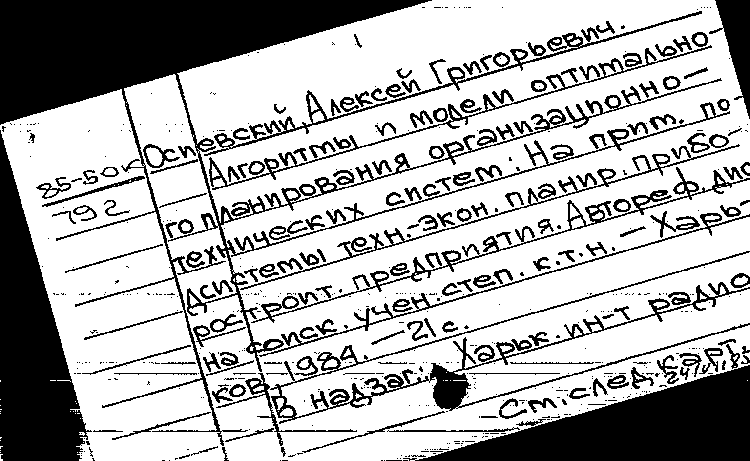 Осиевский, Алексей Григорьевич.
85-50к Алгоритмы и модели оптимально-
792 го планирования организационно-
технических систем: На прим. по-
дсистемы техн.-экон. планир. прибо-
ростроит. предприятия. Автореф. дис
на соиск. учен. степ. к.т.н. - Харь-
ков, 1984. - 21 с.
В надзаг.: Харьк. ин-т радио
См. след. карт.